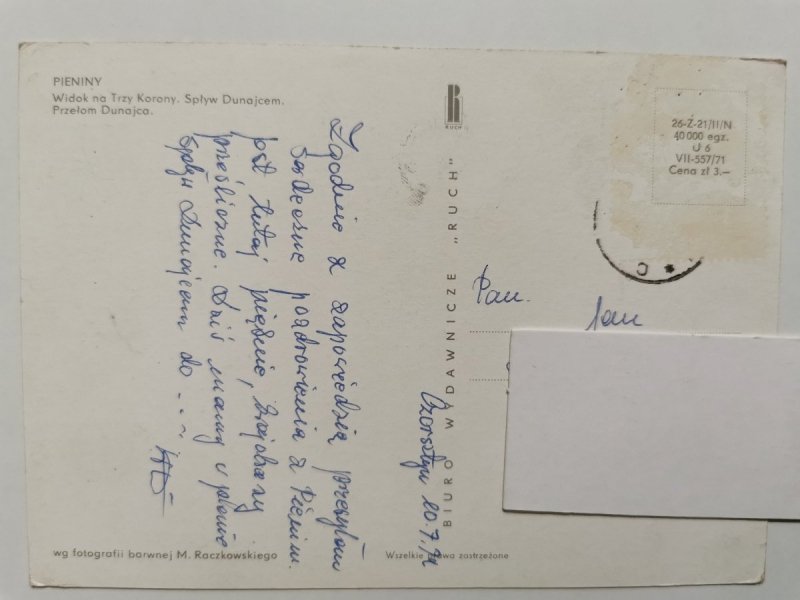 PIENINY
Widok na Trzy Korony. Spływ Dunajcem.
Przełom Dunajca.
Zgodnie z zapowiedzią przesyłam
serdeczne pozdrowienia z Pienin.
Jest tutaj pięknie, krajobrazy
prześliczne. Dziś mamy w planie
spływ Dunajcem do ...
wg fotografii barwnej M. Raczkowskiego
RUCH
BIURO WYDAWNICZE "RUCH"
Wszelkie prawa zastrzeżone
Czorsztyn 20.7.72
26-Z-21/II/N
40 000 egz.
U 6
VII-557/71
Cena zł 3.–
Pan
Jan